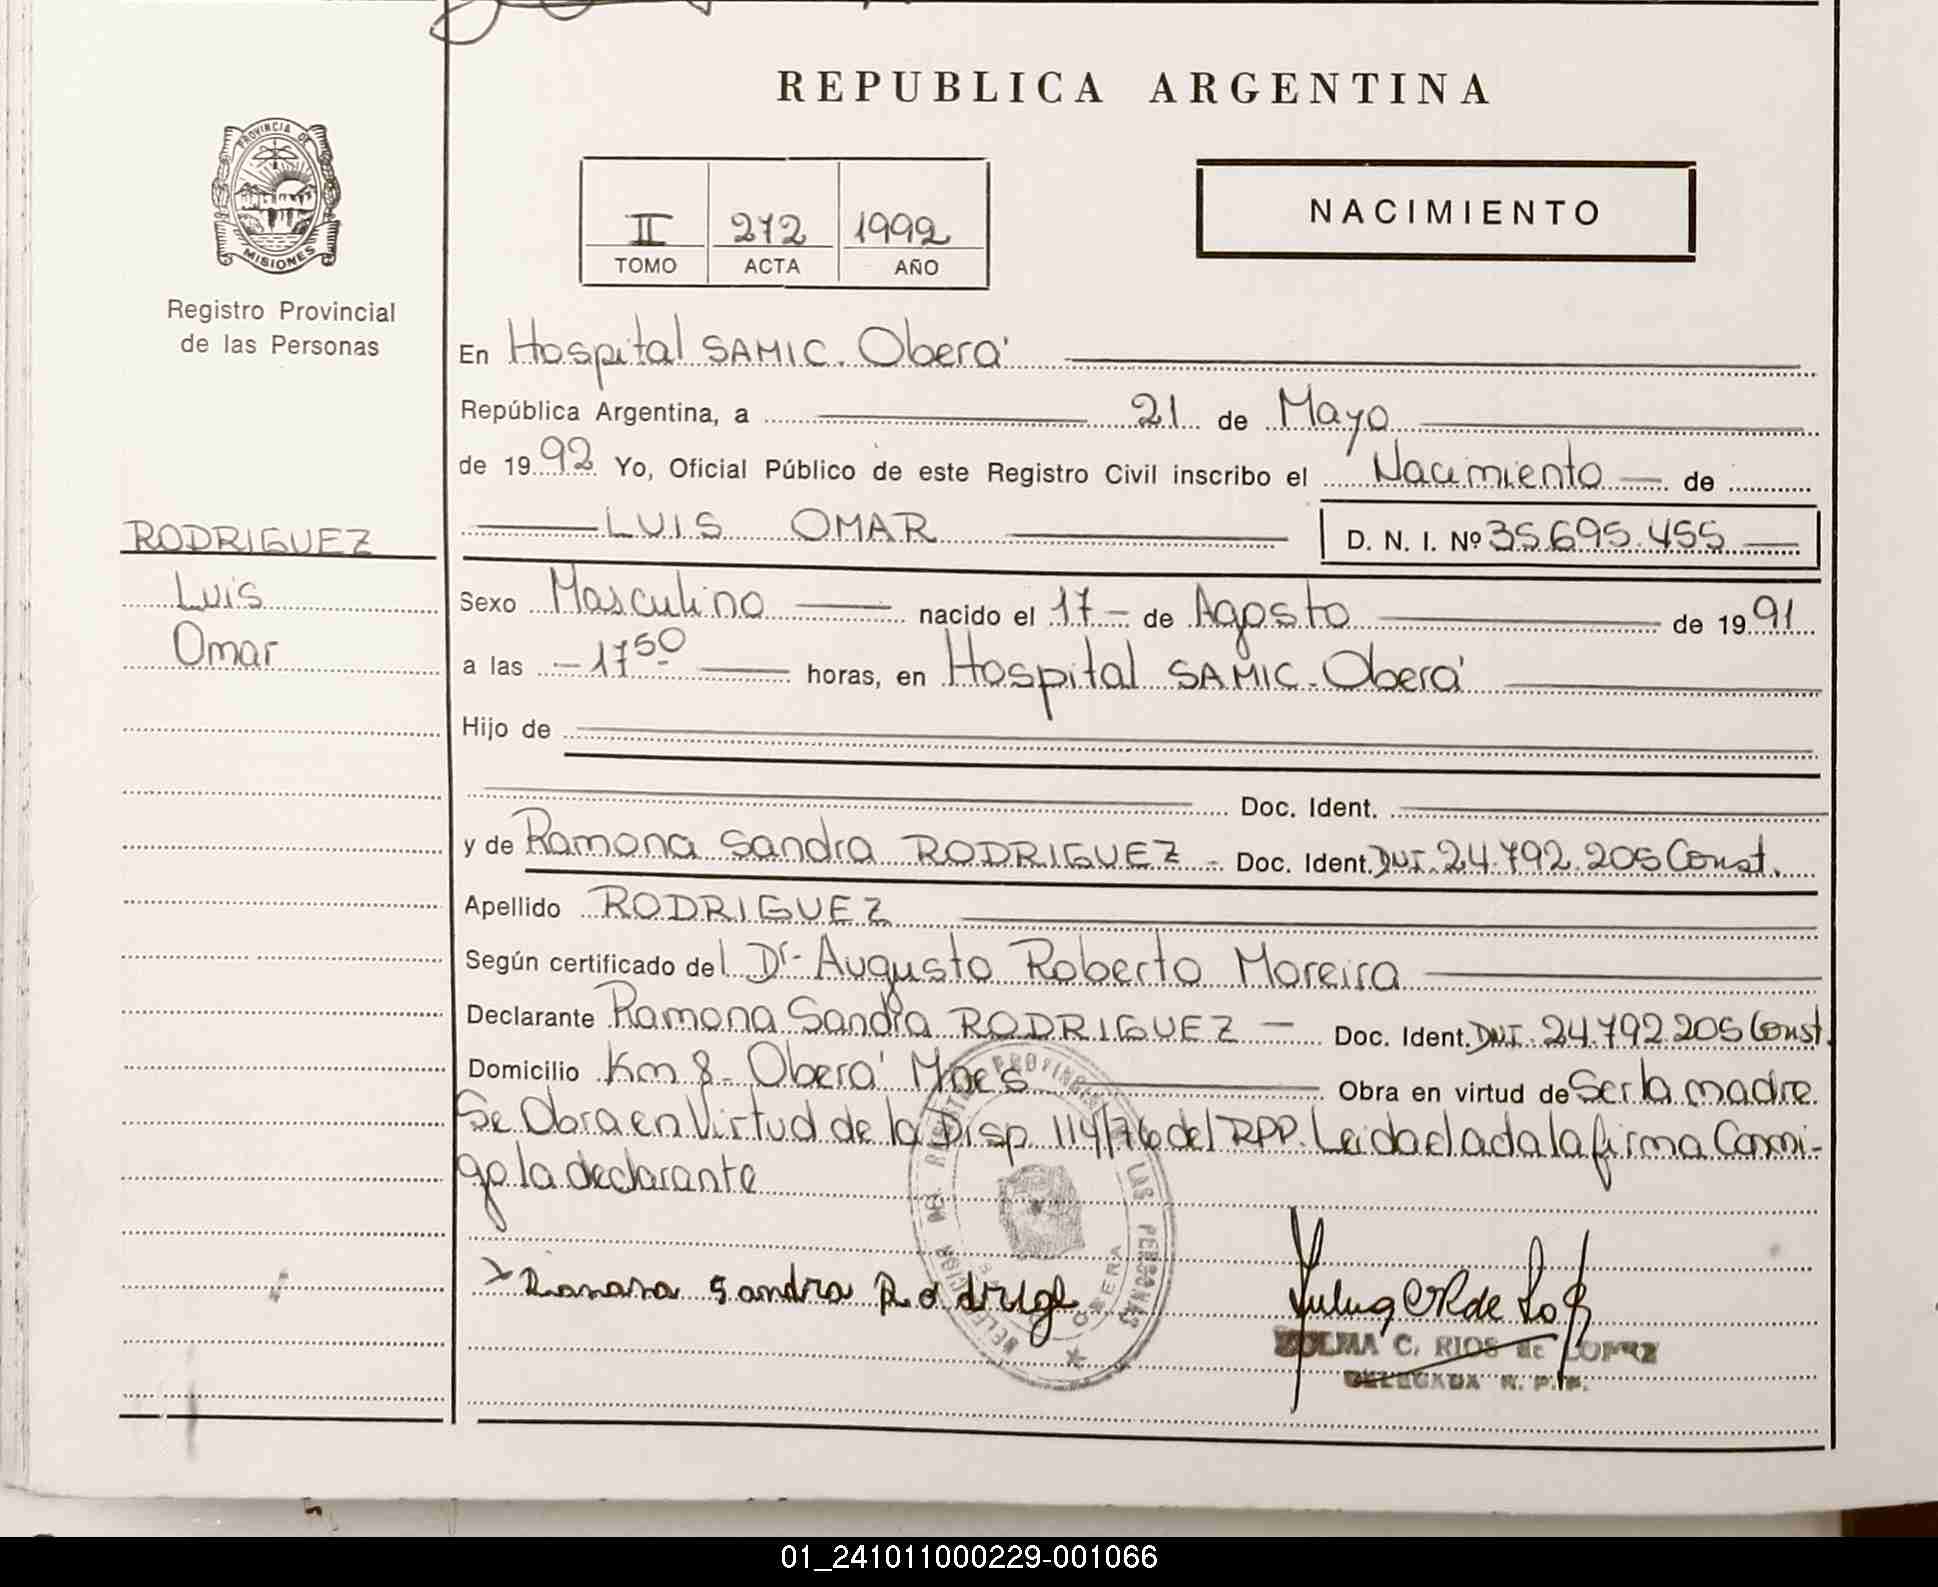 REPUBLICA ARGENTINA
PROVINCIA DE
MISIONES
Registro Provincial
de las Personas
II 272 1992
TOMO ACTA AÑO
NACIMIENTO
En Hospital SAMIC. Oberá
República Argentina, a 21 de Mayo
de 1992 Yo, Oficial Público de este Registro Civil inscribo el Nacimiento de
LUIS OMAR D. N. I. Nº 35.695.455
RODRIGUEZ
Luis
Omar
Sexo Masculino nacido el 17 de Agosto de 1991
a las 17 50 horas, en Hospital SAMIC. Oberá
Hijo de
Doc. Ident.
y de Ramona Sandra RODRIGUEZ - Doc. Ident. DNI. 24.792.205 Const.
Apellido RODRIGUEZ
Según certificado del Dr. Augusto Roberto Moreira
Declarante Ramona Sandra RODRIGUEZ - Doc. Ident. DNI. 24.792.205 Const.
Domicilio Km 8- Oberá Mnes Obra en virtud de Ser la madre.
Se Obra en Virtud de la Disp. 114/76 del RPP. Leida el acta la firma Conmi-
go la declarante
DELEGACION DEL REGISTRO PROVINCIAL DE LAS PERSONAS
OBERA
Ramona Sandra Rodrigez
ZULMA C. RIOS de LOPEZ
DELEGADA R. P. P.
01_241011000229-001066